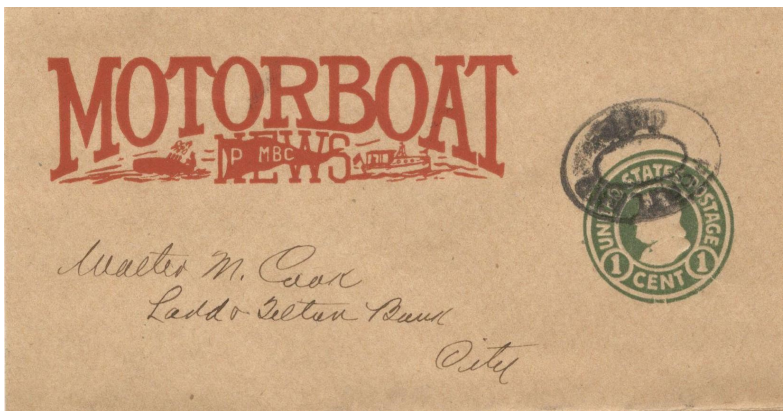 MOTORBOAT
NEWS
P MBC
UNITED STATES POSTAGE
1 CENT 1
Walter M. Cook
Ladd & Tilton Bank
City